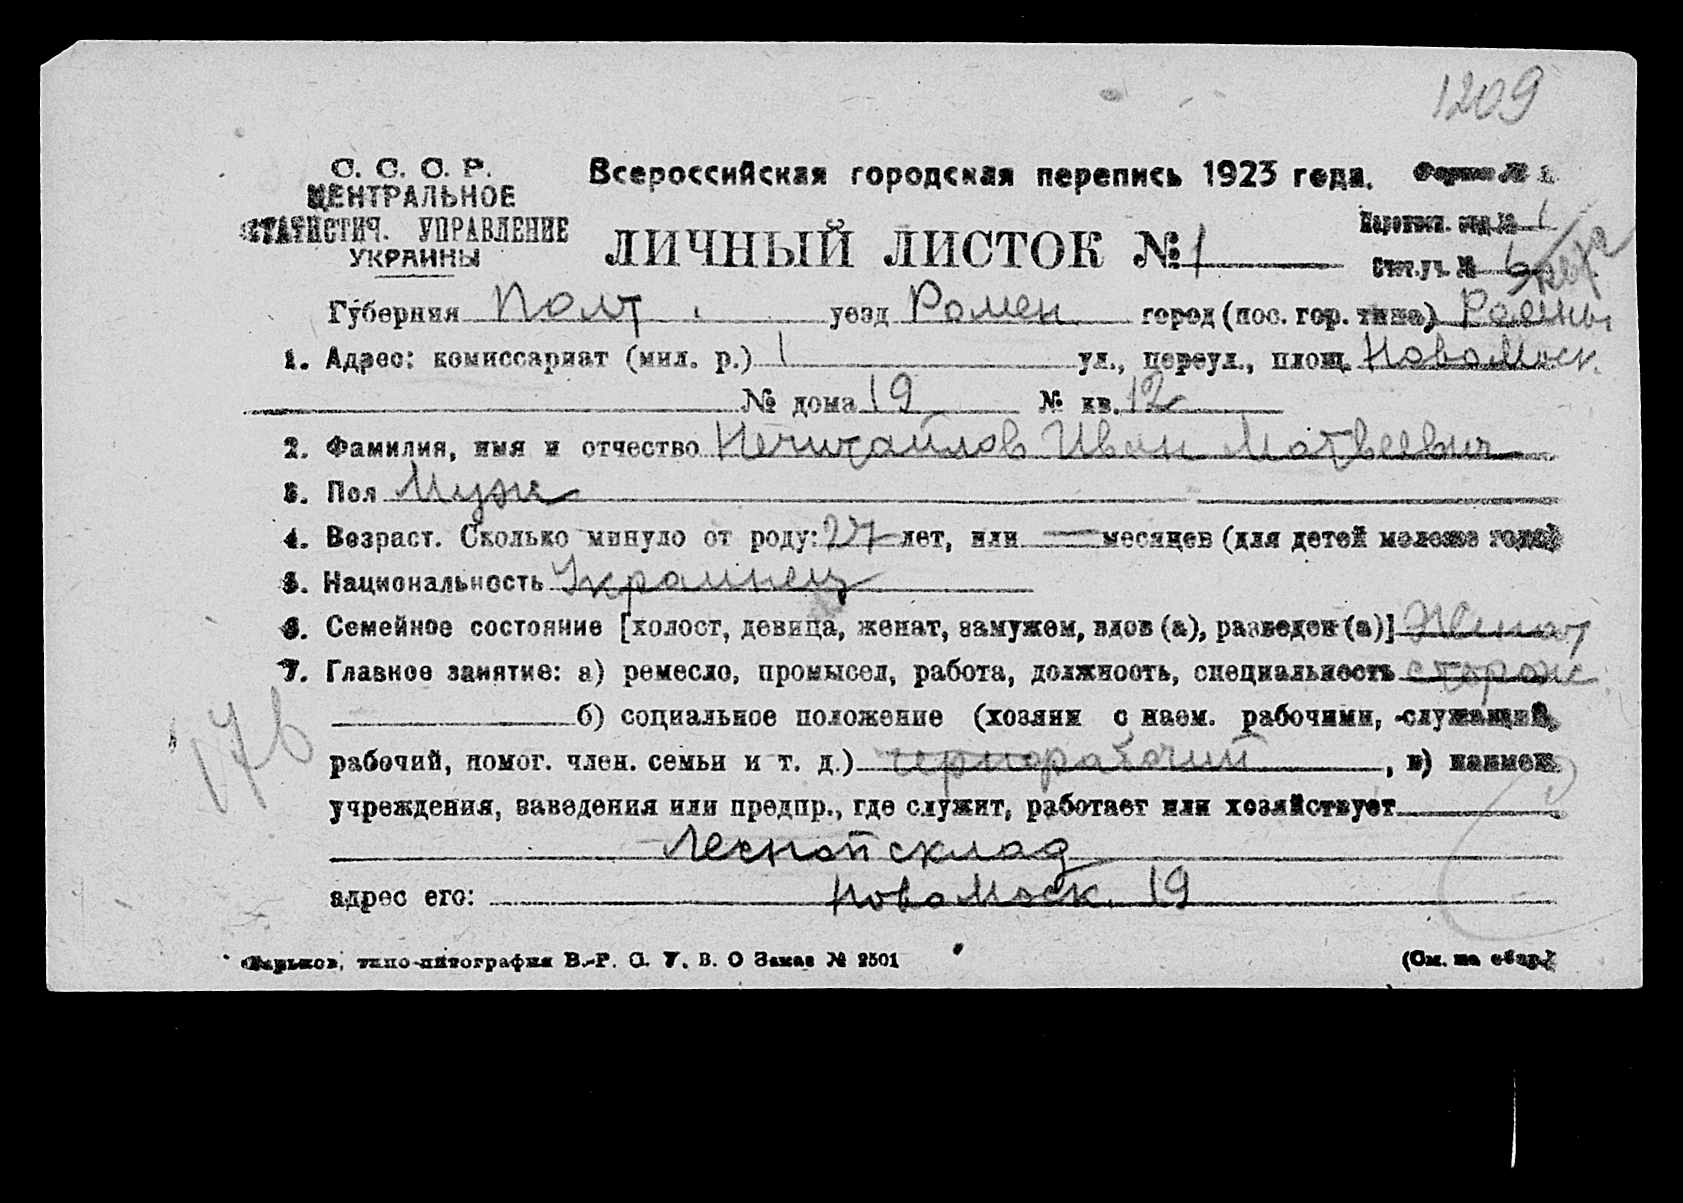 1209
С. С. С. Р.
ЦЕНТРАЛЬНОЕ
СТАТИСТИЧ. УПРАВЛЕНИЕ
УКРАИНЫ
Всероссийская городская перепись 1923 года. Форма № 1.
ЛИЧНЫЙ ЛИСТОК № 1
Переписн. отд. № 1
Счет. уч. № 6
Губерния Полт. уезд Ромен город (пос. гор. типа) Ромны
1. Адрес: комиссариат (мил. р.) 1 ул., переул., площ. НовоМоск.
№ дома 19 № кв. 12
2. Фамилия, имя и отчество Нечитайлов Иван Матвеевич
3. Пол Муж
4. Возраст. Сколько минуло от роду: 27 лет, или — месяцев (для детей моложе года)
5. Национальность Украинец
6. Семейное состояние [холост, девица, женат, замужем, вдов (а), разведен (а)] Женат
7. Главное занятие: а) ремесло, промысел, работа, должность, специальность сторож.
б) социальное положение (хозяин с наем. рабочими, служащий,
рабочий, помог. член. семьи и т. д.) чернорабочий, в) наимен.
176
учреждения, заведения или предпр., где служит, работает или хозяйствует
Лесной склад
адрес его: НовоМоск. 19
Харьков, типо-литография В.-Р. С. У. В. О Заказ № 2501 (См. на обор.)